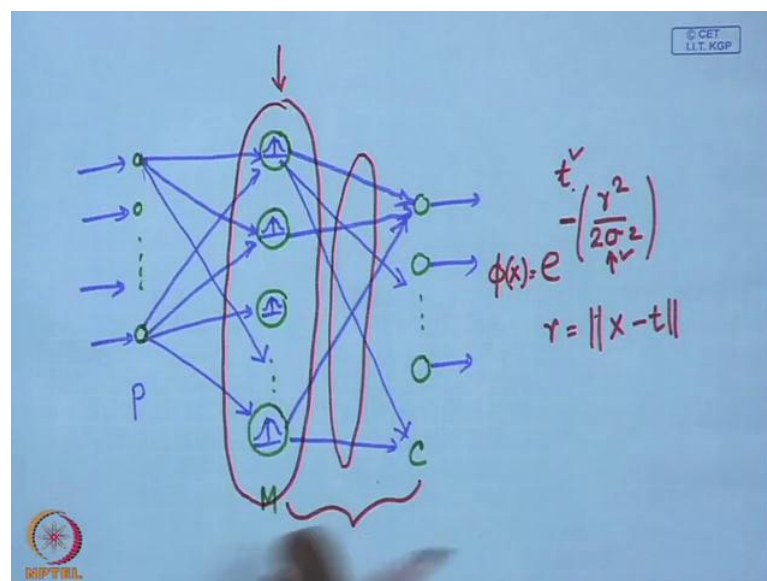 © CET
I.I.T. KGP
t ✓
φ(x) = e^-(r²/2σ²)
↑✓
r = ||x - t||
P
M
C
NPTEL